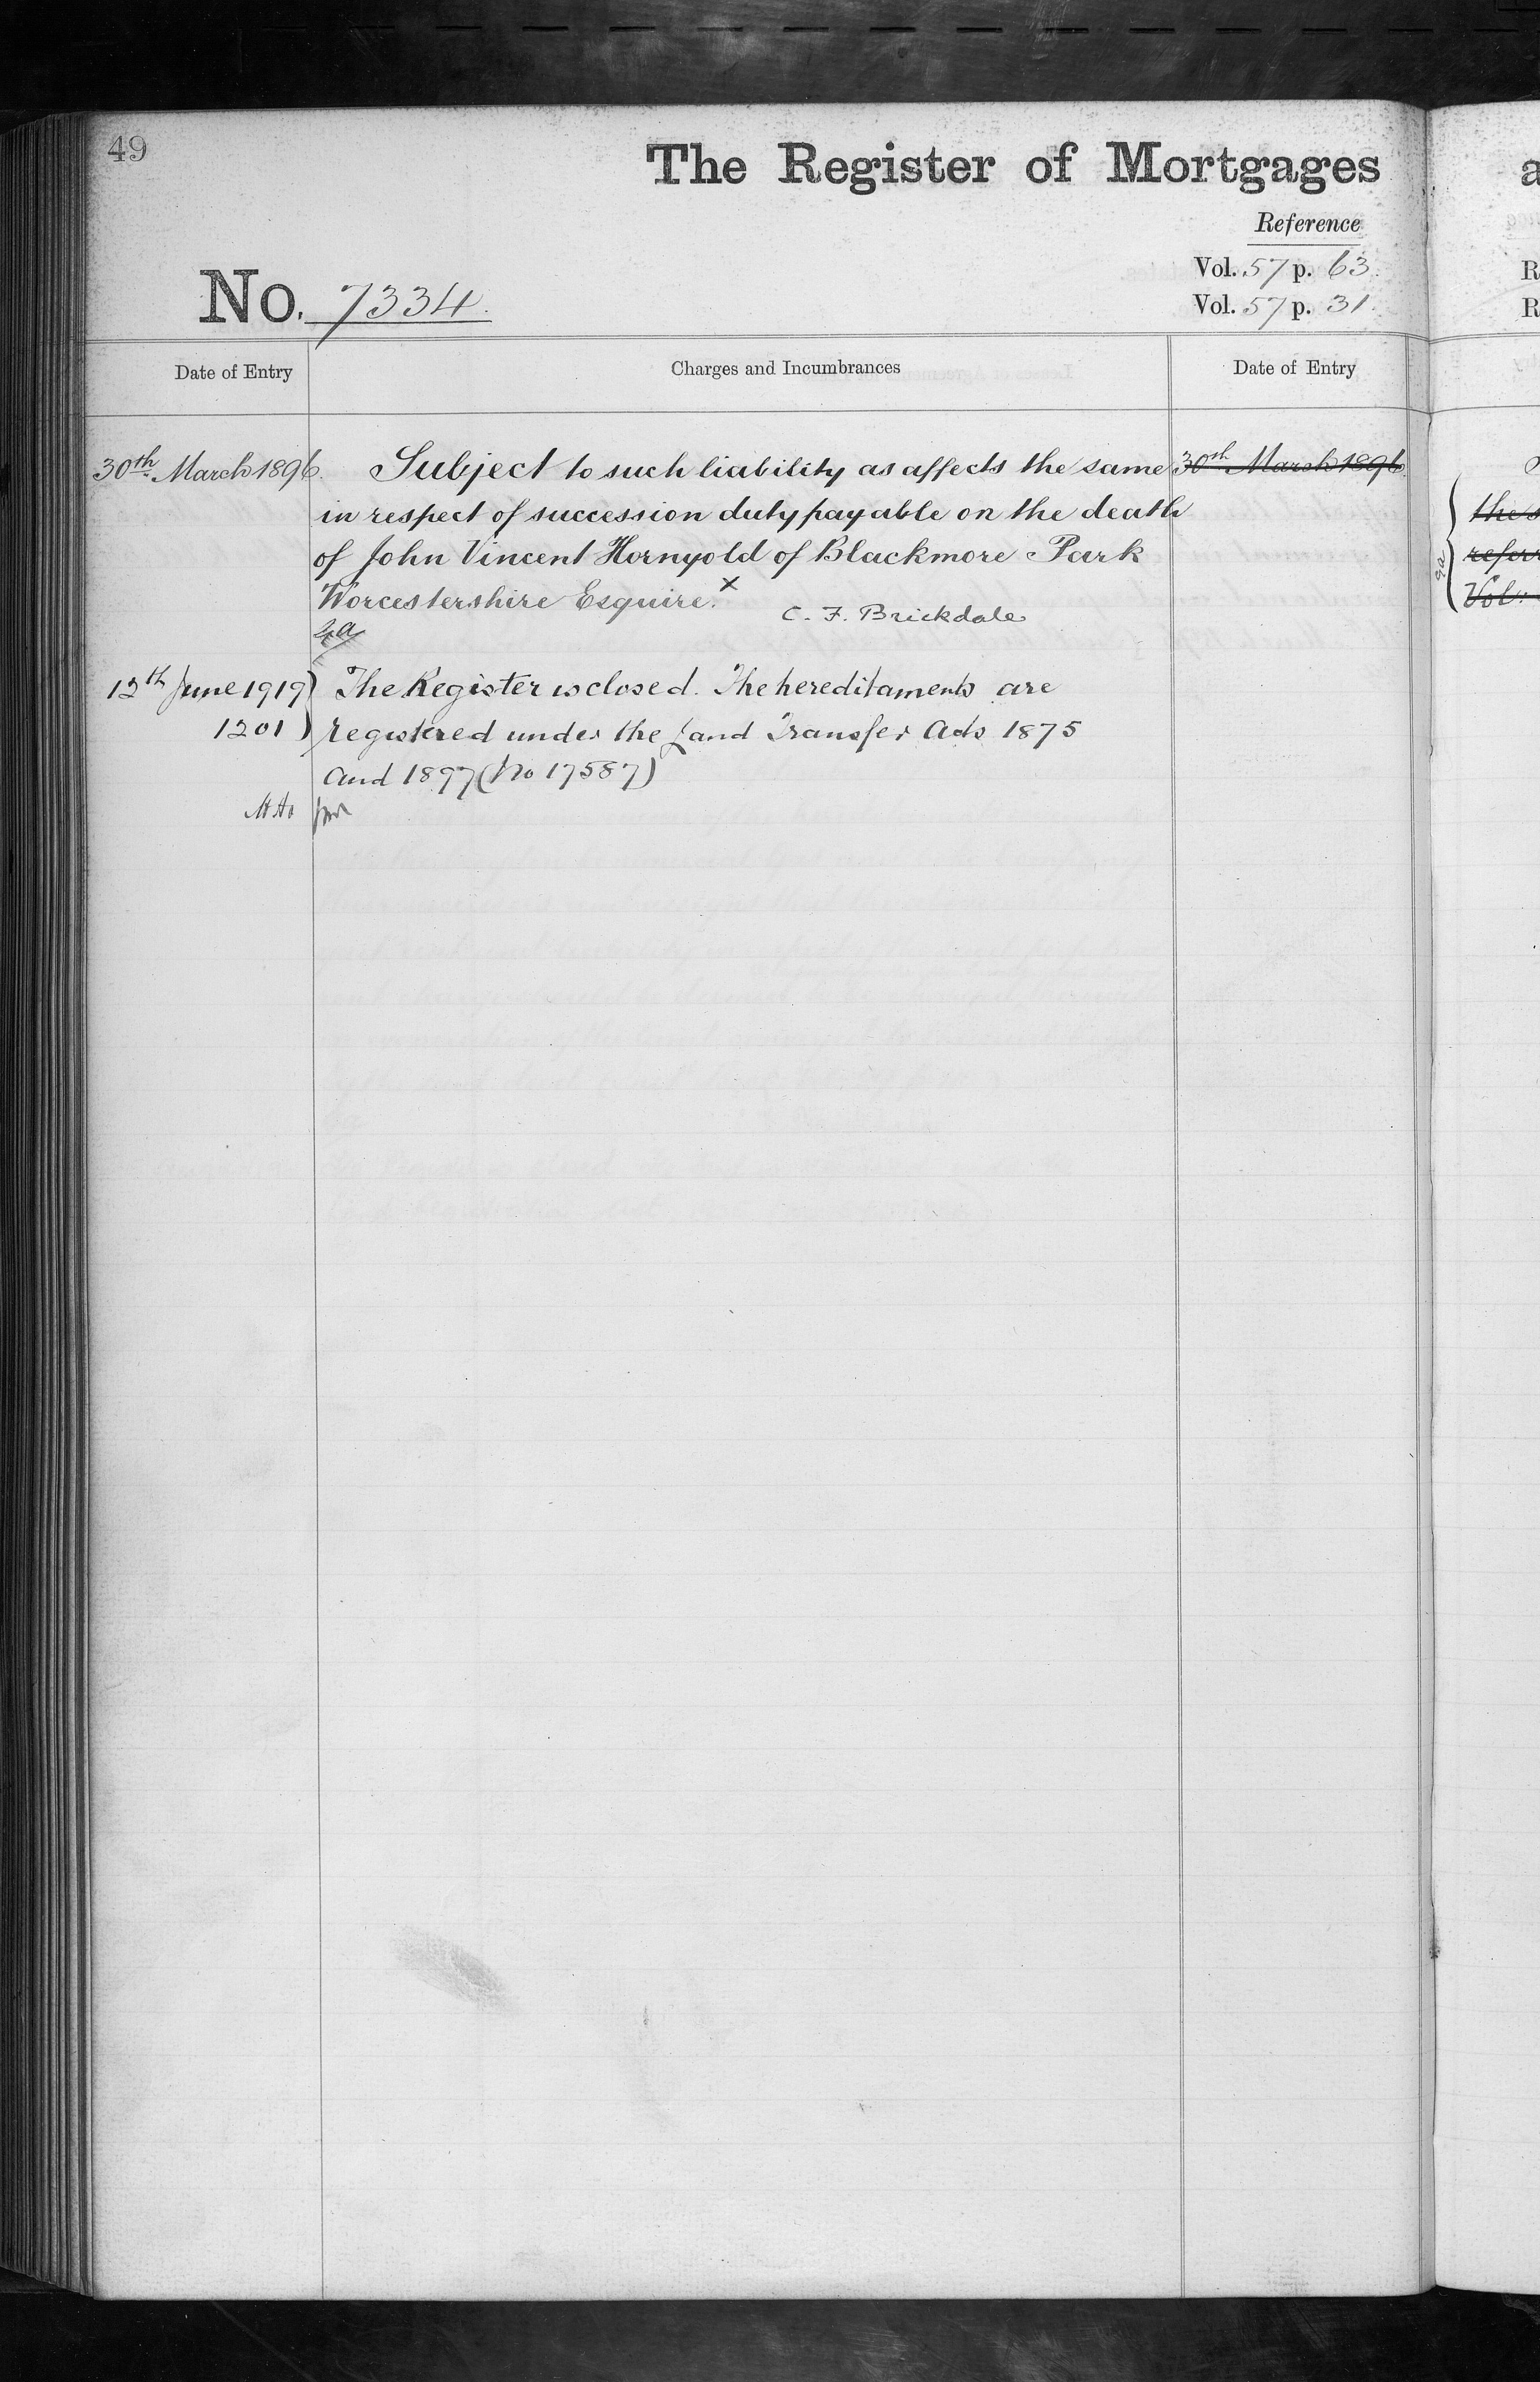 49
The Register of Mortgages
Reference
Vol. 57 p. 63.
No. 7334.
Vol. 57 p. 31.
Date of Entry
Charges and Incumbrances
Date of Entry
30th March 1896.
Subject to such liability as affects the same
30th March 1896.
in respect of succession duty payable on the death
of John Vincent Hornyold of Blackmore Park
Worcestershire Esquire. x
C. F. Brickdale
12th June 1919)
The Register is closed. The hereditaments are
1201)
registered under the Land Transfer Acts 1875
and 1897 (No 17587)
a
R
R
the s
referr
Vol.